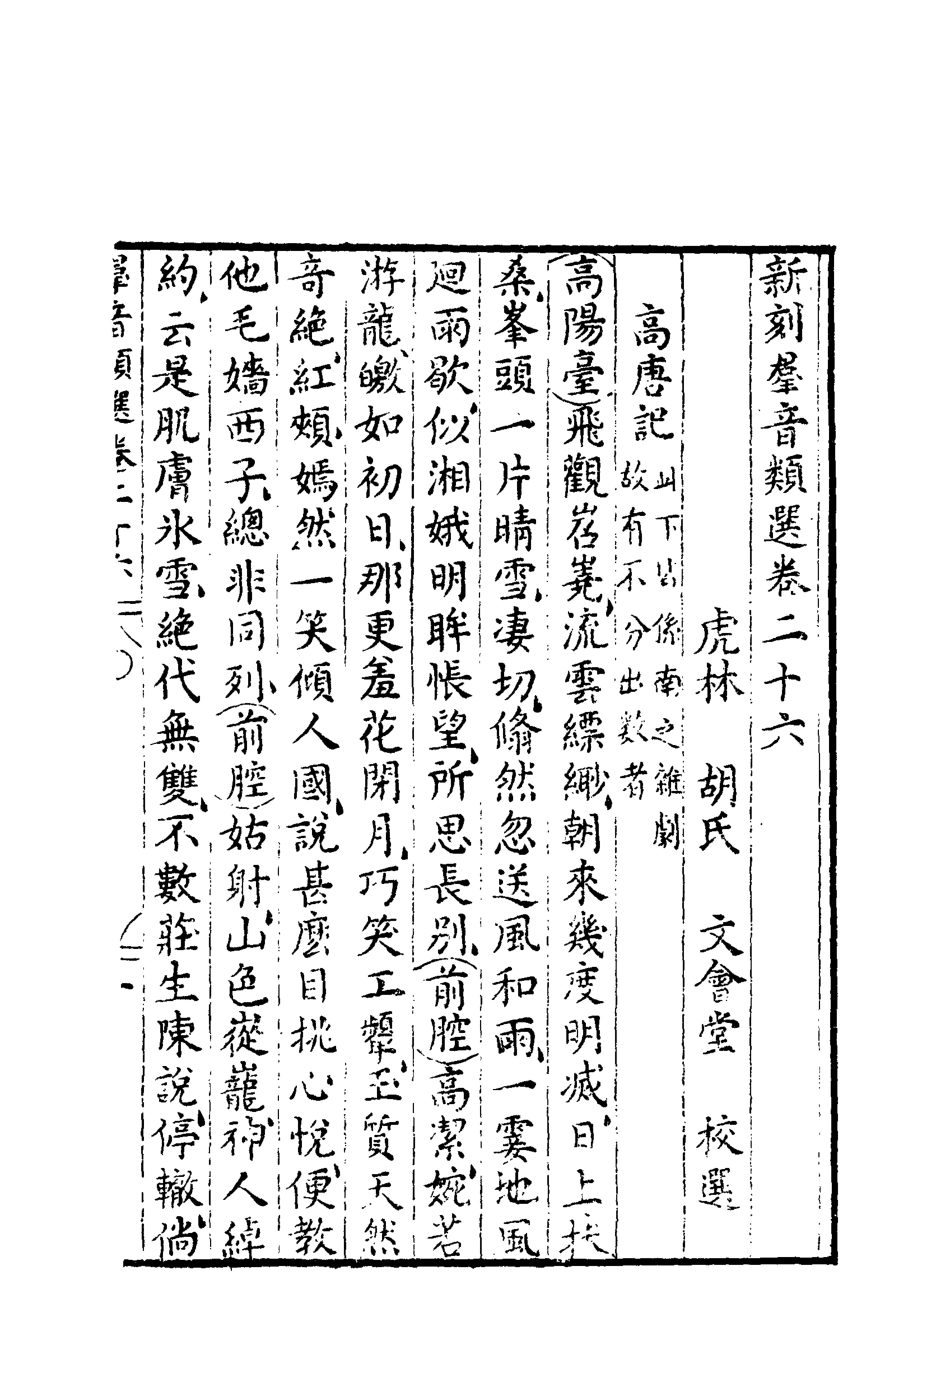 新刻羣音類選卷二十六
虎林 胡氏 文會堂 校選
高唐記
此下皆係南之雜劇
故有不分出數者
高陽臺飛觀岧嶤、流雲縹緲、朝來幾度明滅、日上扶
桑、峯頭一片晴雪、凄切、翛然忽送風和雨、一霎地風
廻雨歇、似湘娥明眸悵望、所思長別、前腔高潔、婉若
游龍、皦如初日、那更羞花閉月、巧笑工顰、玉質天然
奇絶、紅頰、嫣然一笑傾人國、說甚麼目挑心悅、便教
他毛嬙西子、總非同列、前腔姑射、山色嵸巃、神人綽
約、云是肌膚氷雪、絶代無雙、不數莊生陳說、停轍、倘
羣音類選卷二十六
二